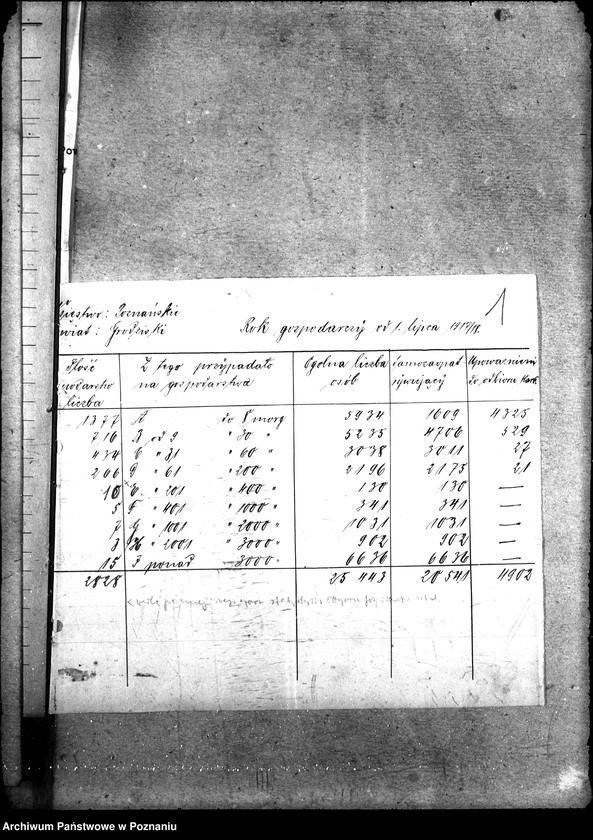 1
Poznańskie
Grodziski
Rok gospodarczy od 1. lipca 1917/18.
Ilość
liczba
Z tego przypadało
na gospodarstwa
Ogólna liczba
osób
samozaopat
rzywujący
Upoważnieni
do odbioru kart.
1377 A do 8 morg 5934 1609 4325
716 B od 9 " 30 " 5235 4706 529
434 C " 31 " 60 " 3038 3011 27
266 D " 61 " 200 " 2196 2175 21
10 E. " 201 " 400 " 130 130 —
5 F " 401 " 1000 " 341 341 —
7 G " 1001 " 2000 " 1031 1031 —
3 H " 2001 " 3000 " 902 902 —
15 I ponad 3000 " 6636 6636 —
2828 25 443 20 541 4902
Archiwum Państwowe w Poznaniu